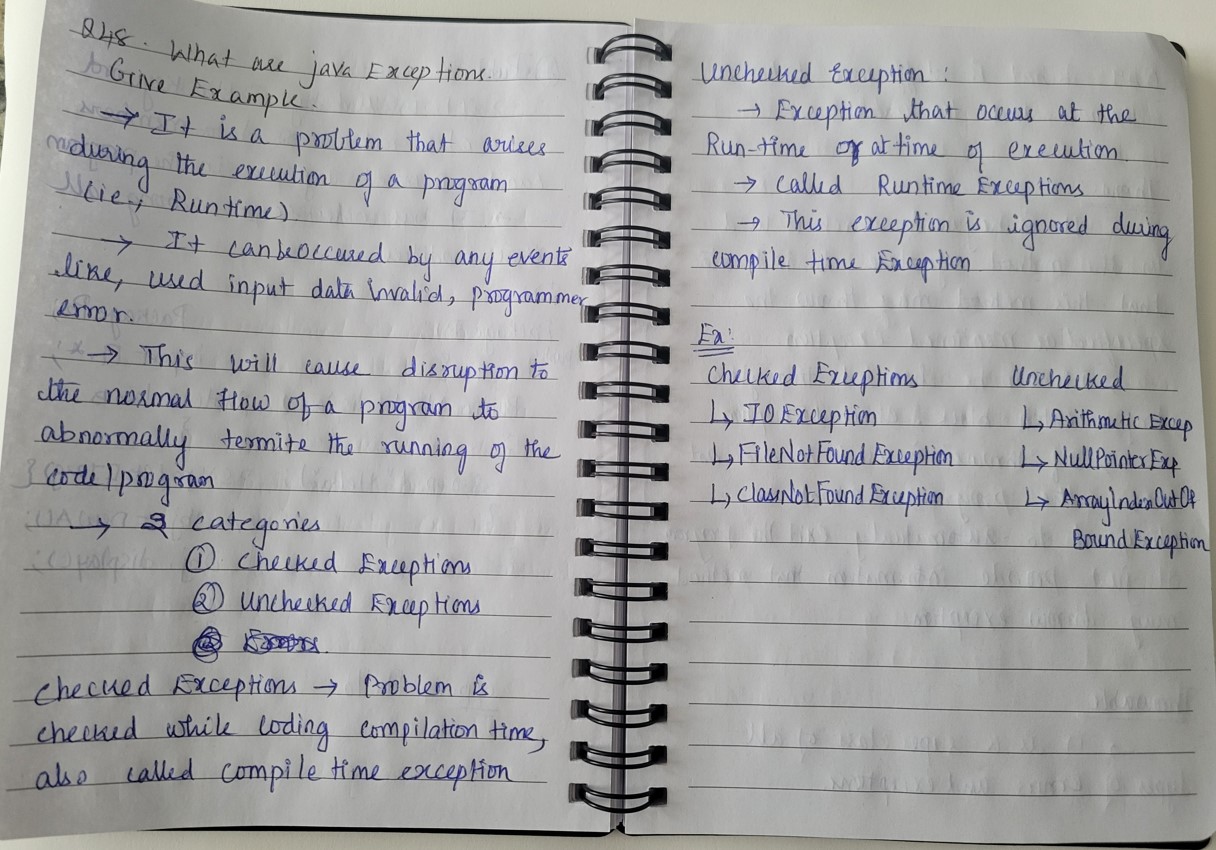 Q48. What are java Exceptions.
Give Example.
→ It is a problem that arises
during the execution of a program
(ie., Runtime)
→ It can be occused by any events
like, used input data invalid, programmer
error.
→ This will cause disruption to
the normal flow of a program to
abnormally termite the running of the
code/program
→ 2 categories
① Checked Exceptions
② Unchecked Exceptions
Checked Exceptions → Problem is
checked while coding compilation time,
also called compile time exception
Unchecked Exception :
→ Exception that occurs at the
Run-time or at time of execution
→ Called Runtime Exceptions
→ This exception is ignored during
compile time Exception
Ex:
Checked Exceptions Unchecked
↳ IO Exception ↳ Arithmetic Excep
↳ FileNotFound Exception ↳ NullPointerExp
↳ ClassNotFound Exception ↳ ArrayIndexOutOf
Bound Exception